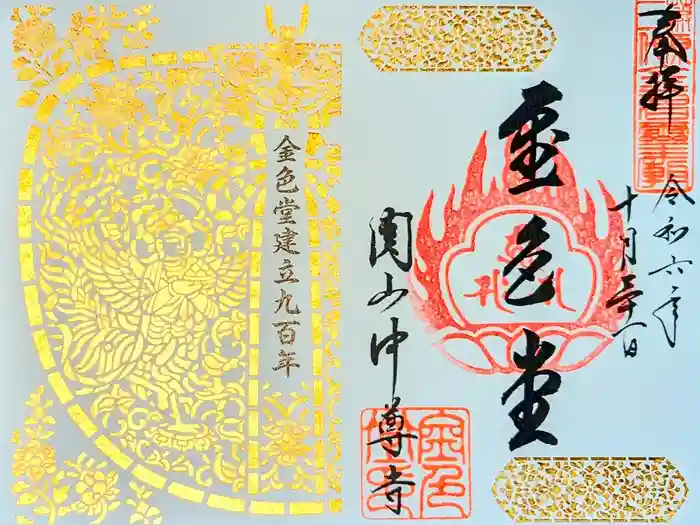 奉拝
令和六年
十月三十一日
金色堂
関山中尊寺
金色堂建立九百年